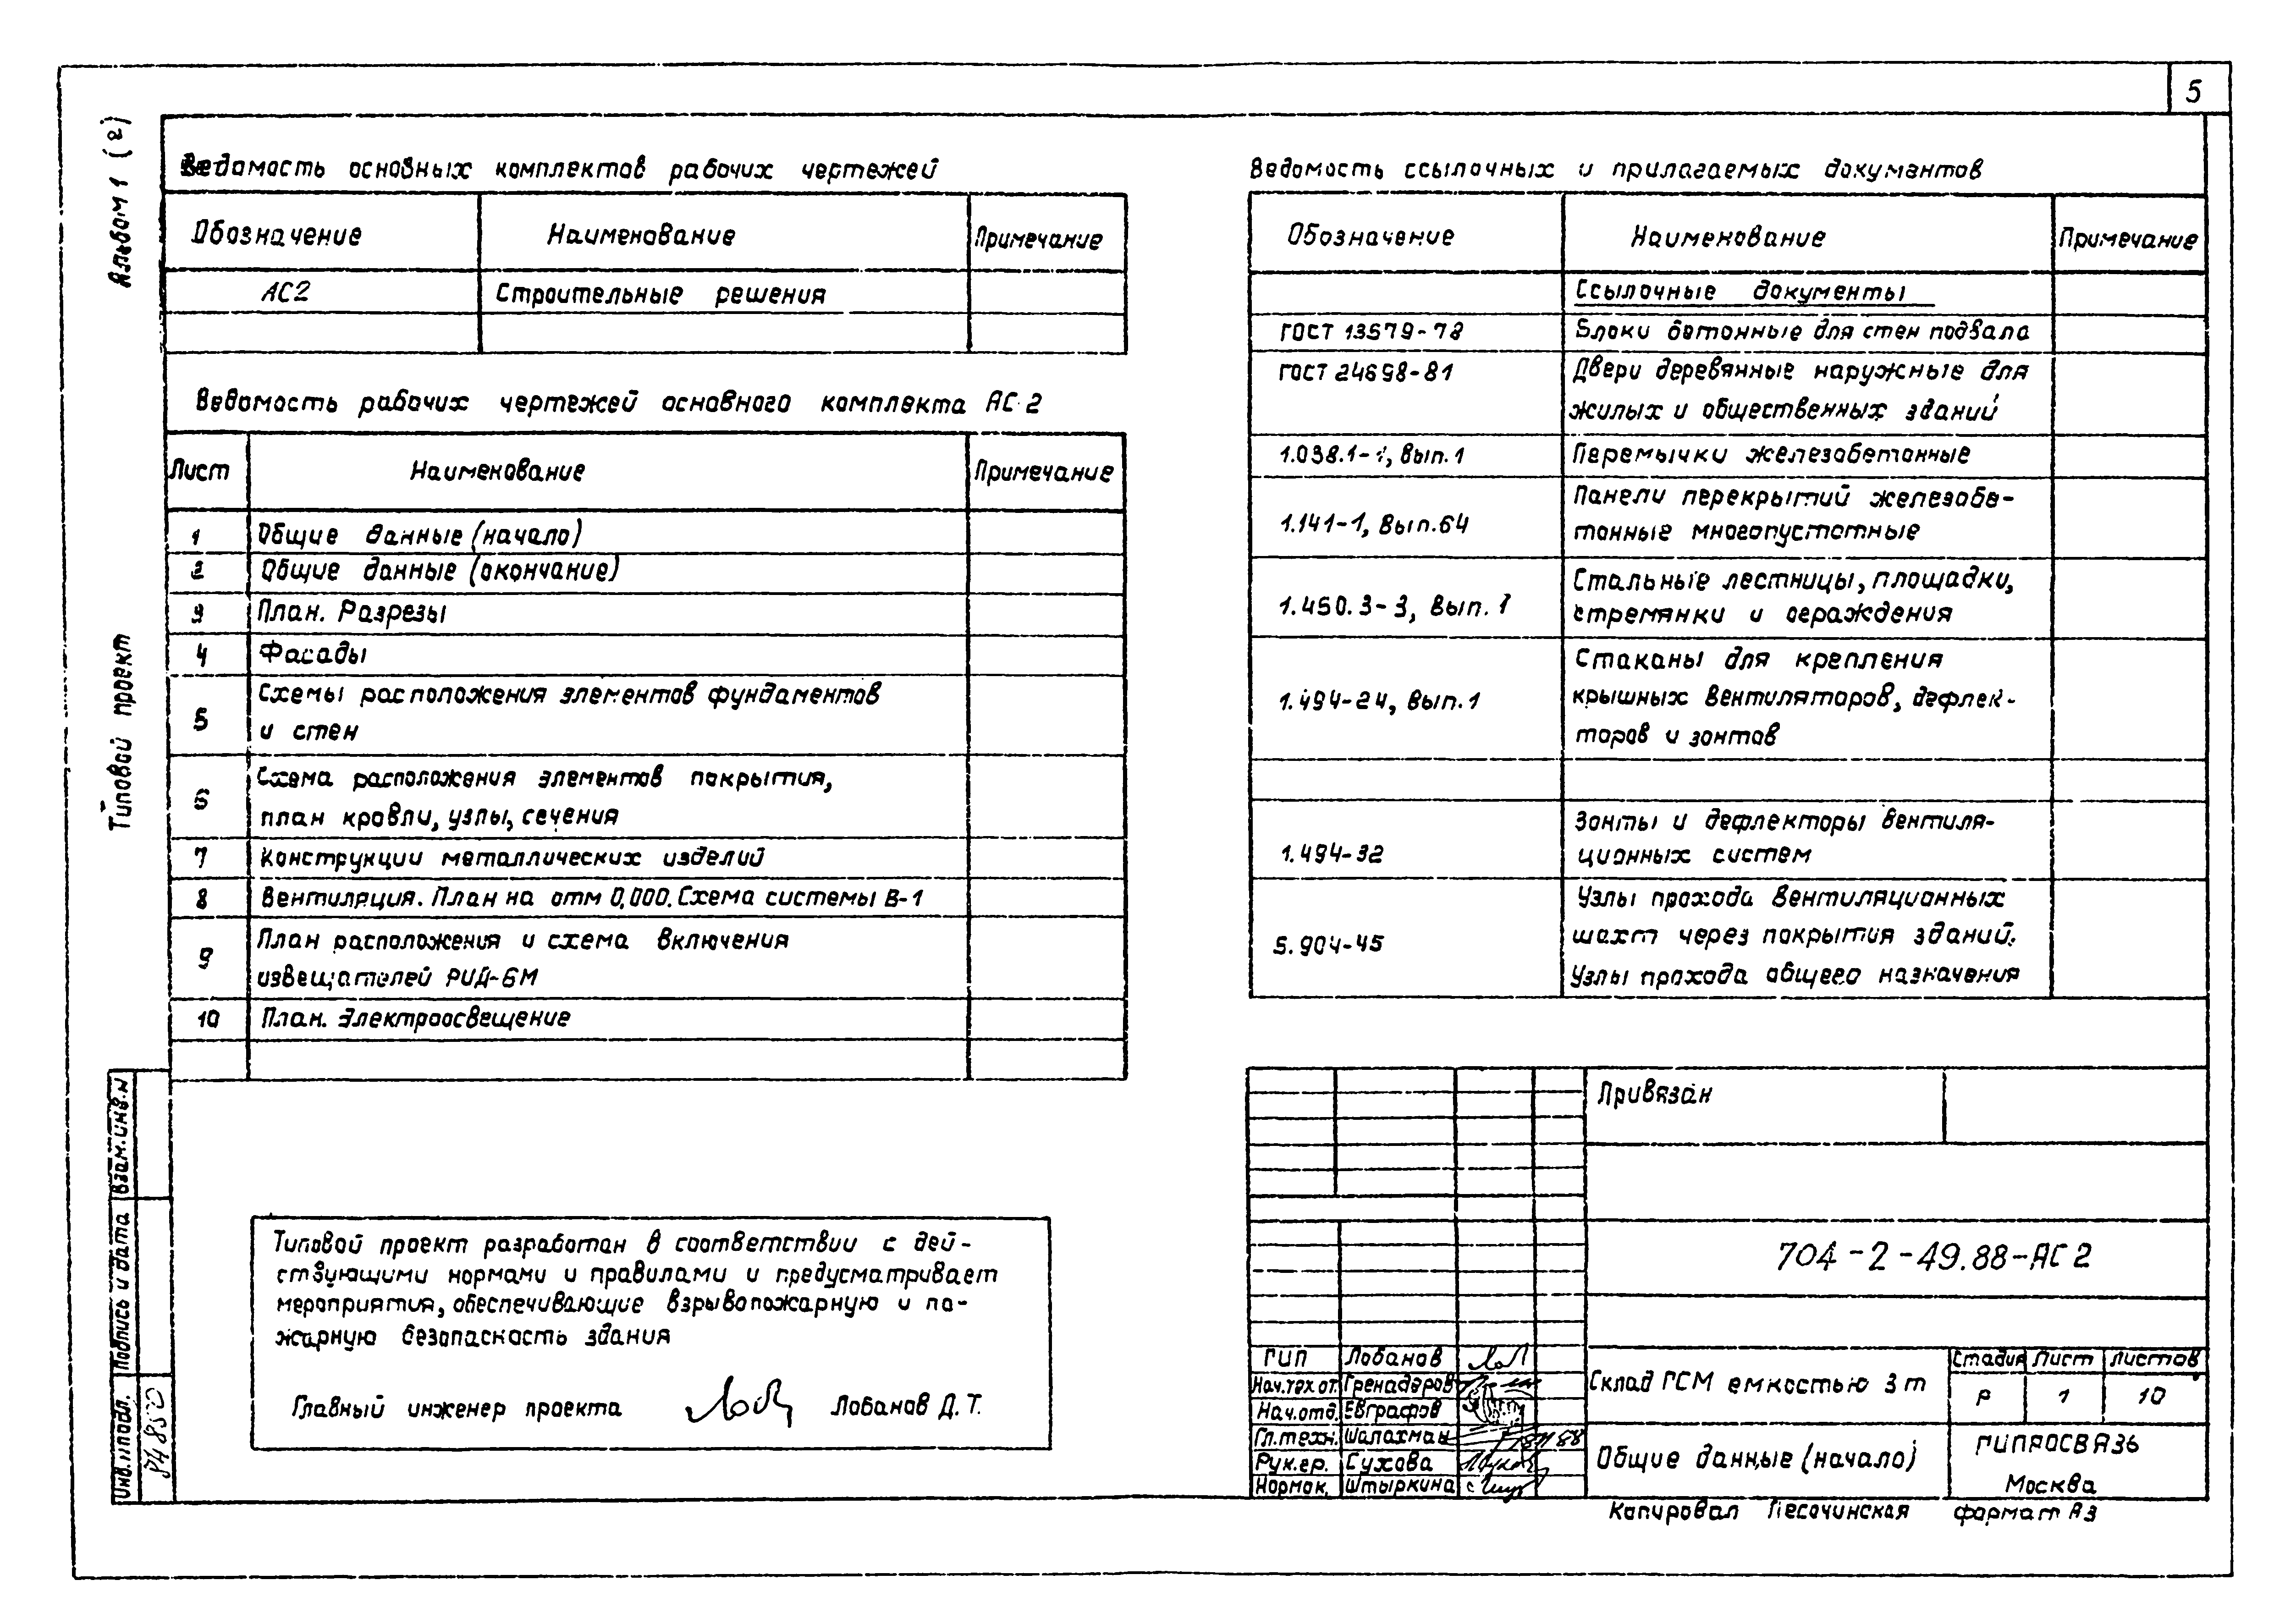 5
Альбом 1 (2)
Типовой проект
Ведомость основных комплектов рабочих чертежей
Обозначение Наименование Примечание
АС2 Строительные решения
Ведомость рабочих чертежей основного комплекта АС 2
Лист Наименование Примечание
1 Общие данные (начало)
2 Общие данные (окончание)
3 План. Разрезы
4 Фасады
5 Схемы расположения элементов фундаментов
и стен
6 Схема расположения элементов покрытия,
план кровли, узлы, сечения
7 Конструкции металлических изделий
8 Вентиляция. План на отм 0,000. Схема системы В-1
9 План расположения и схема включения
извещателей РИД-6М
10 План. Электроосвещение
Типовой проект разработан в соответствии с дей-
ствующими нормами и правилами и предусматривает
мероприятия, обеспечивающие взрывопожарную и по-
жарную безопасность здания
Главный инженер проекта Лобанов Д. Т.
Ведомость ссылочных и прилагаемых документов
Обозначение Наименование Примечание
Ссылочные документы
ГОСТ 13579-78 Блоки бетонные для стен подвала
ГОСТ 24698-81 Двери деревянные наружные для
жилых и общественных зданий
1.038.1-1, вып. 1 Перемычки железобетонные
1.141-1, вып. 64 Панели перекрытий железобе-
тонные многопустотные
1.450.3-3, вып. 1 Стальные лестницы, площадки,
стремянки и ограждения
1.494-24, вып. 1 Стаканы для крепления
крышных вентиляторов, дефлек-
торов и зонтов
1.494-32 Зонты и дефлекторы вентиля-
ционных систем
5.904-45 Узлы прохода вентиляционных
шахт через покрытия зданий.
Узлы прохода общего назначения
Привязан
704-2-49.88-АС 2
ГИП Лобанов
Нач.тех.от. Гренадеров
Нач.отд. Евграфов
Гл.техн. Шалахман
Рук.гр. Сухова
Нормок. Штыркина
Склад ГСМ емкостью 3 т
Стадия Лист Листов
Р 1 10
Общие данные (начало)
ГИПРОСВЯЗЬ
Москва
Копировал Песочинская формат А3
Взам.инв.н
Подпись и дата
Инв.н подл.